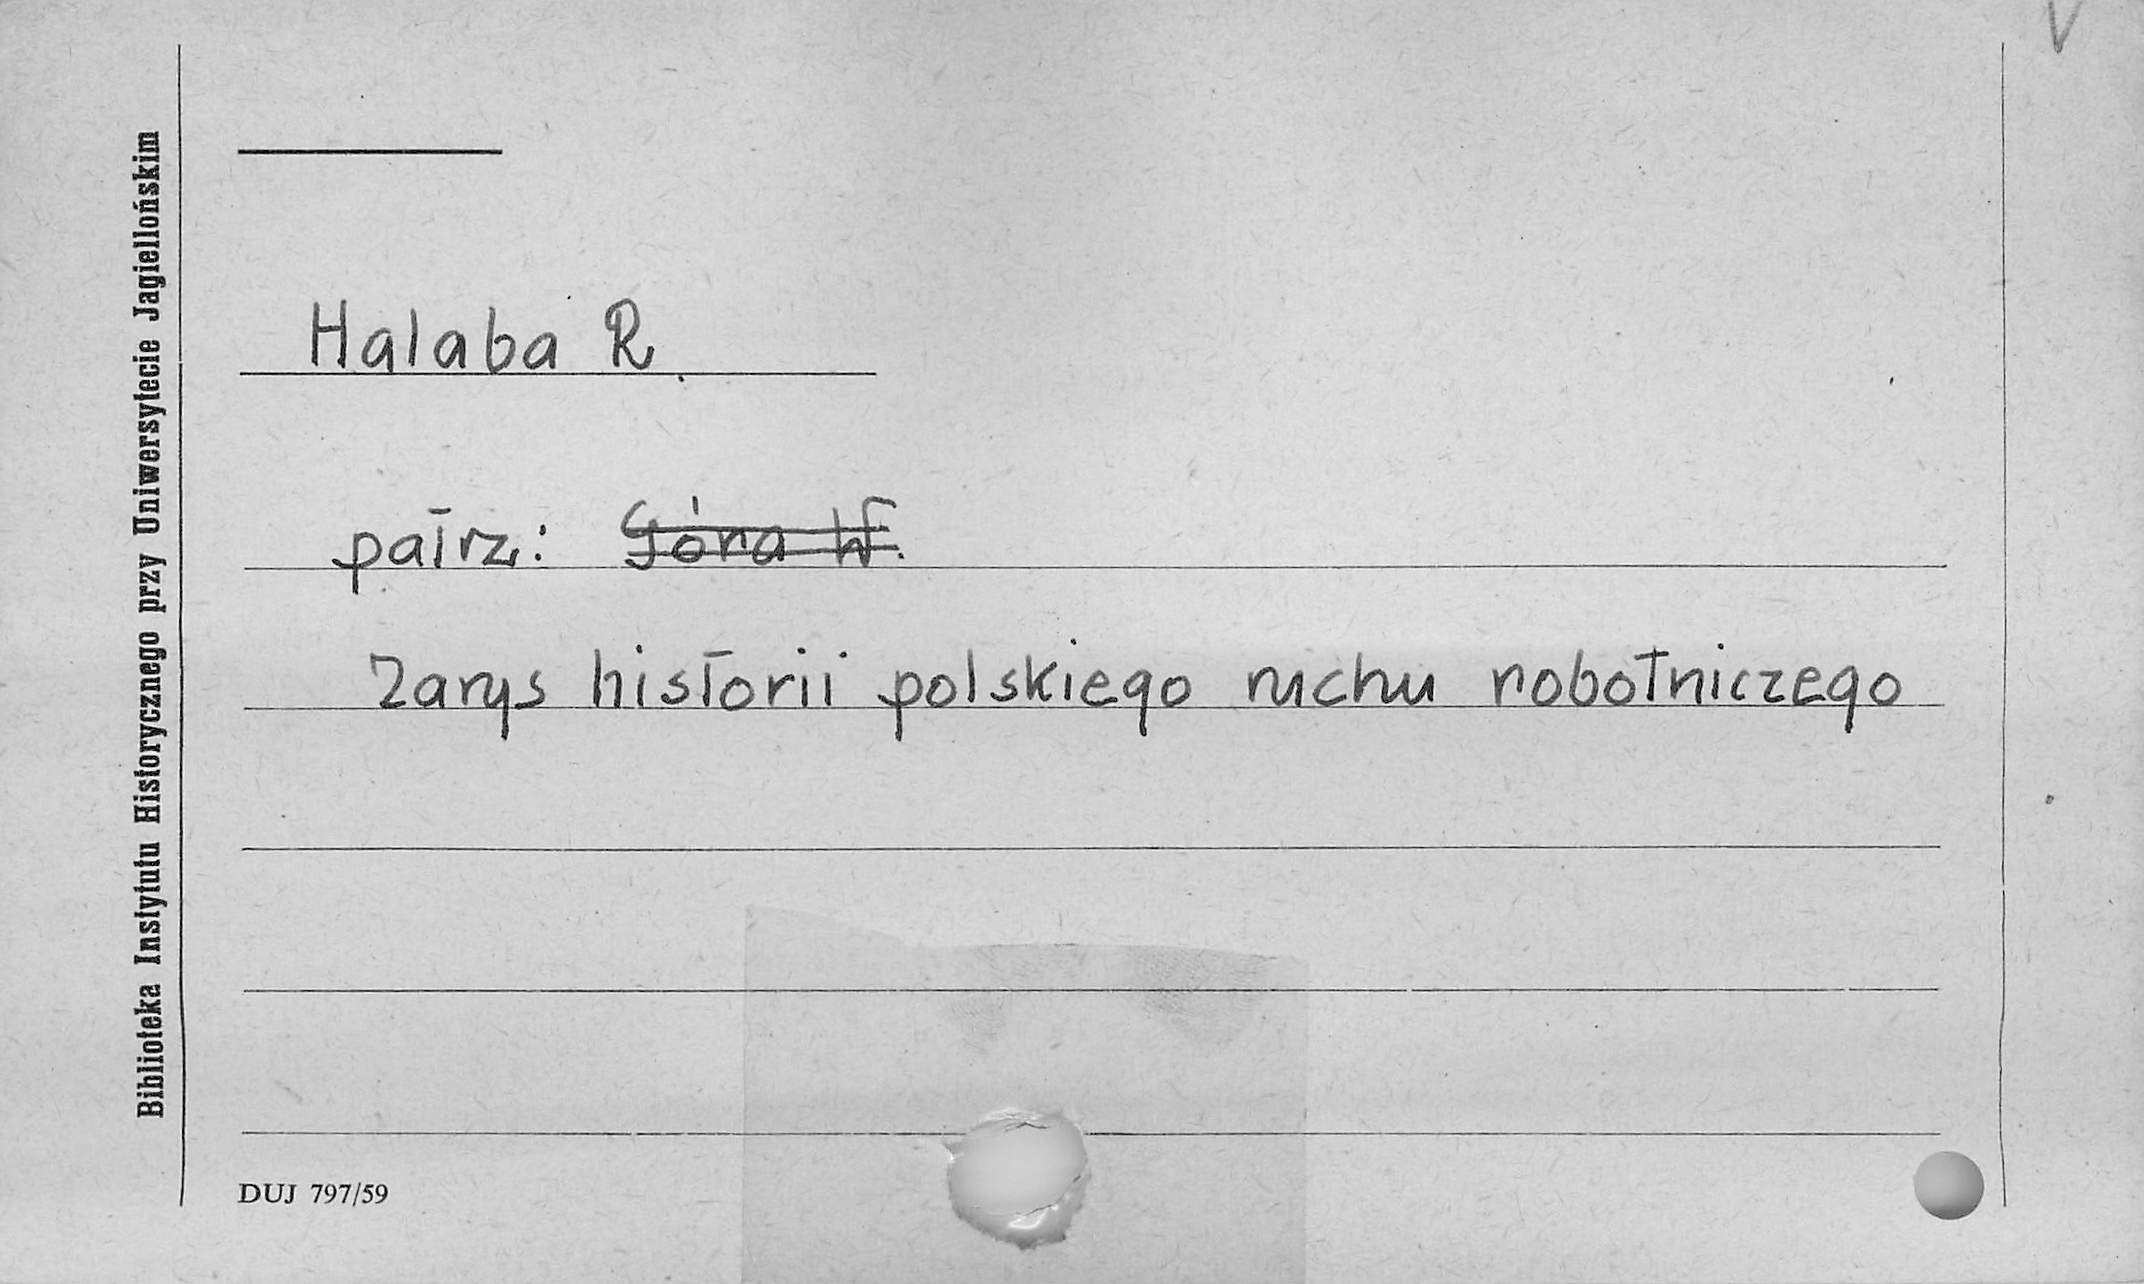 V
Halaba R.
patrz: Góra W.
Zarys historii polskiego ruchu robotniczego
Biblioteka Instytutu Historycznego przy Uniwersytecie Jagiellońskim
DUJ 797/59